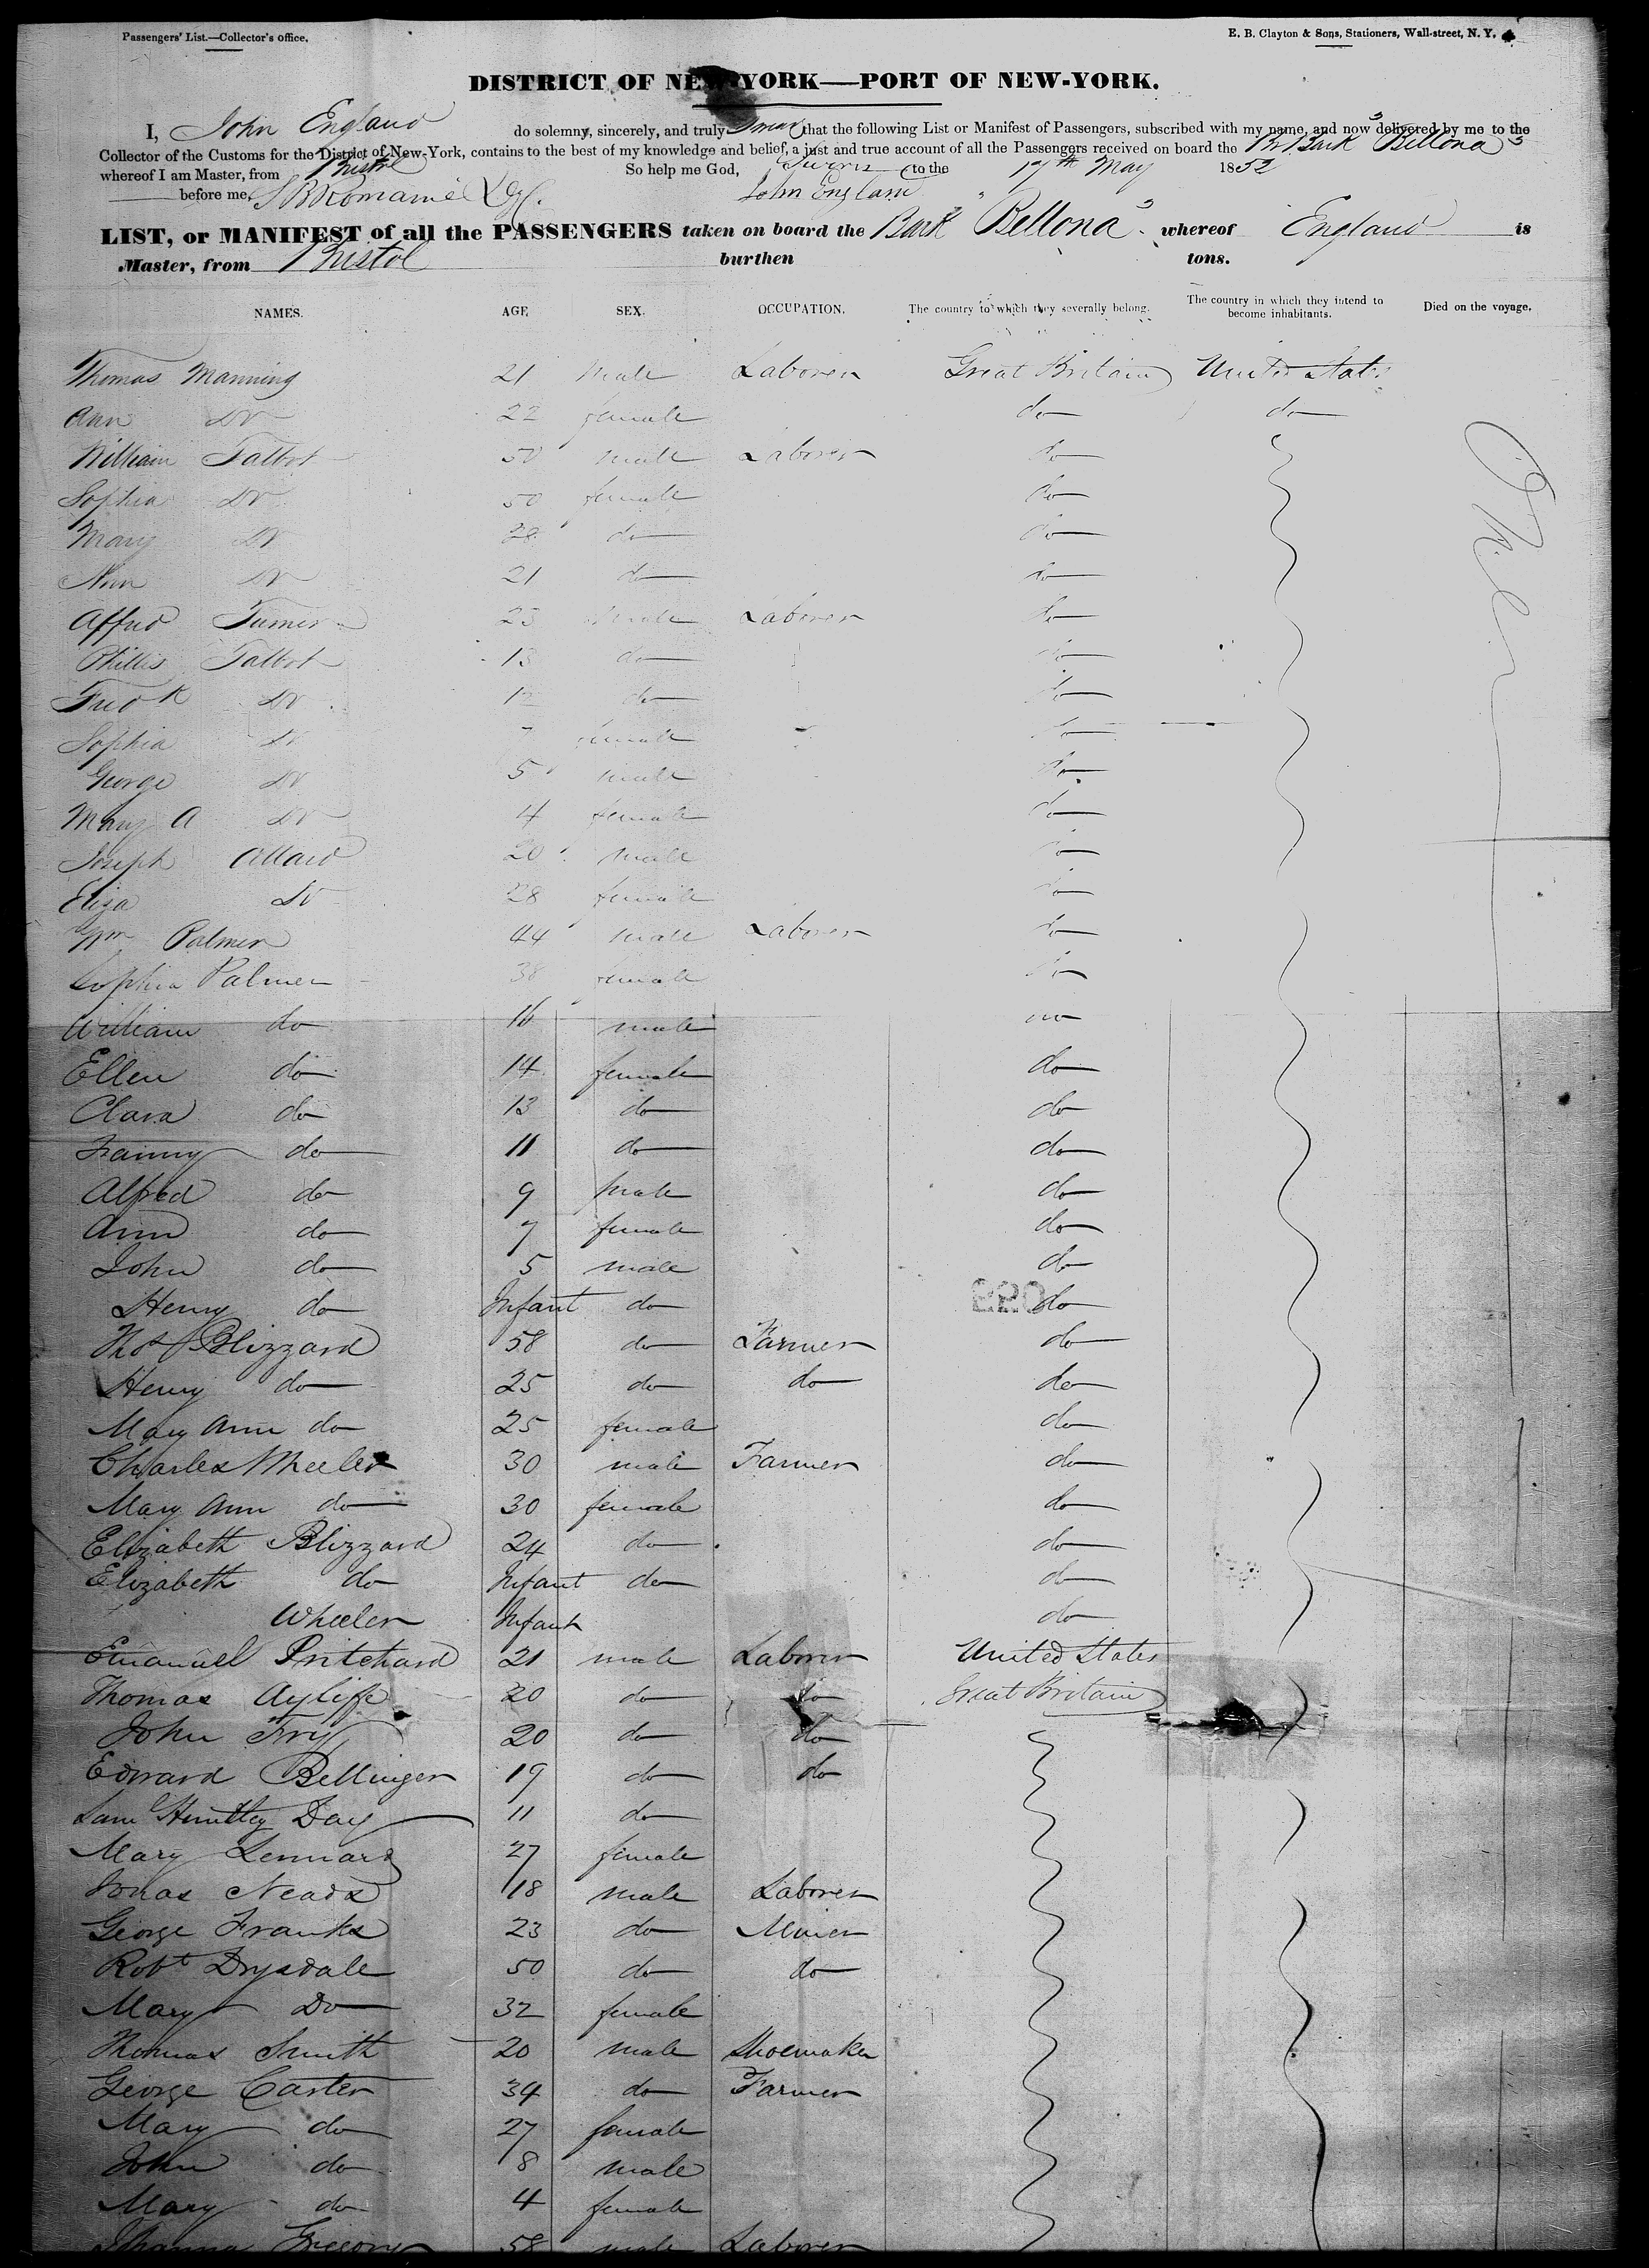 Passengers' List.—Collector's office.
E. B. Clayton & Sons, Stationers, Wall-street, N. Y.
DISTRICT OF NEW-YORK—PORT OF NEW-YORK.
I, John England do solemny, sincerely, and truly swear that the following List or Manifest of Passengers, subscribed with my name, and now delivered by me to the
Collector of the Customs for the District of New-York, contains to the best of my knowledge and belief, a just and true account of all the Passengers received on board the Br. Bark Bellona
whereof I am Master, from Bristol So help me God, Sworn to the 17th May 1852
before me, John England
LIST, or MANIFEST of all the PASSENGERS taken on board the Bark "Bellona" whereof England is
Master, from Bristol burthen tons.
NAMES. AGE SEX. OCCUPATION. The country to which they severally belong. The country in which they intend to become inhabitants. Died on the voyage.
Thomas Manning 21 Male Laborer Great Britain United States
Ann Do 22 female do do
William Talbot 50 male Laborer do
Sophia Do 50 female do
Mary Do 28 do do
Ann Do 21 do do
Turner 23 male Laborer do
Phillis Talbot 13 do do
Fredk Do 12 do do
Sophia Do 7 female do
George Do 5 male do
Mary A Do 4 female do
Joseph Allard 20 male do
Eliza Do 28 female do
Wm Palmer 44 male Laborer do
Sophia Palmer 38 female do
William do 16 male do
Ellen do 14 female do
Clara do 13 do do
Fanny do 11 do do
Alfred do 9 male do
Ann do 7 female do
John do 5 male do
Henry do Infant do do
Thos Blizzard 58 do Farmer do
Henry do 25 do do do
Mary Ann do 25 female do
Charles Wheeler 30 male Farmer do
Mary Ann do 30 female do
Elizabeth Blizzard 24 do do
Elizabeth do Infant do do
Wheeler Infant do
Emanuell Pritchard 21 male Laborer United States
Thomas Ayliffe 20 do do Great Britain
John Fry 20 do do
Edward Bellinger 19 do do
Saml Huntley Day 11 do
Mary Lennard 27 female
Jonas Neads 18 male Laborer
George Franks 23 do Miner
Robt Drysdale 50 do do
Mary Do 32 female
Thomas Smith 20 male Shoemaker
George Carter 34 do Farmer
Mary do 27 female
John do 8 male
Mary do 4 female
Gregory 58 male Laborer